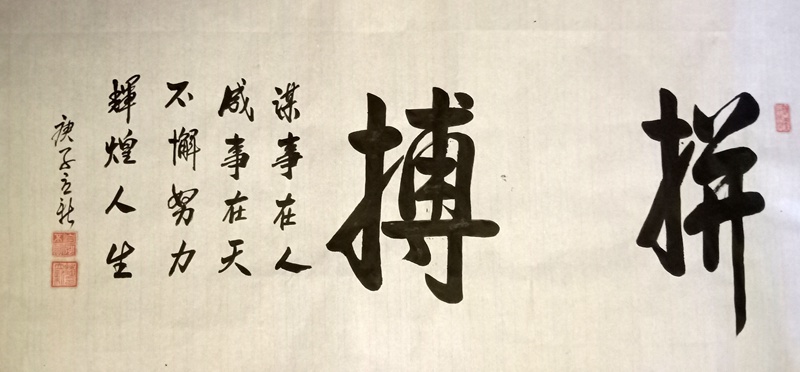 拼搏
谋事在人
成事在天
不懈努力
輝煌人生
庚子立秋